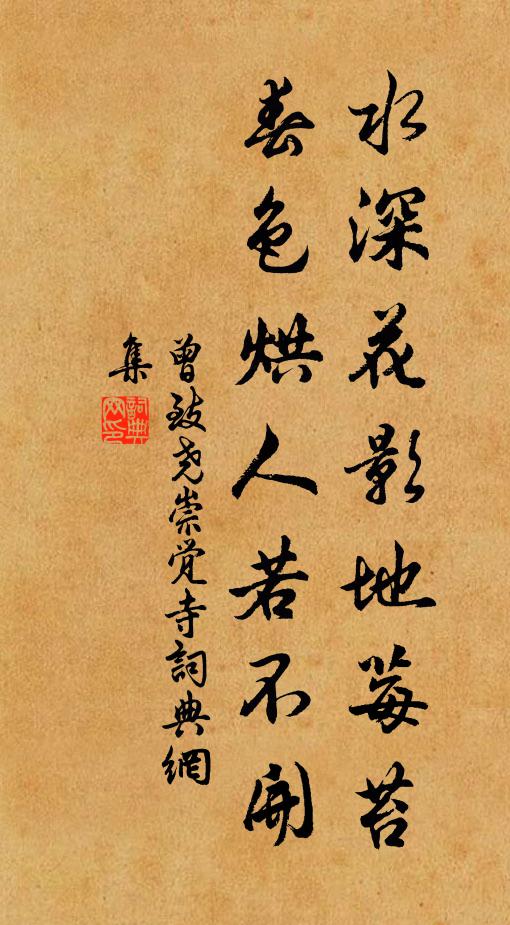 水深花影地莓苔
春色烘人若不開
曾致尧崇觉寺詞典網
集
詞典網印